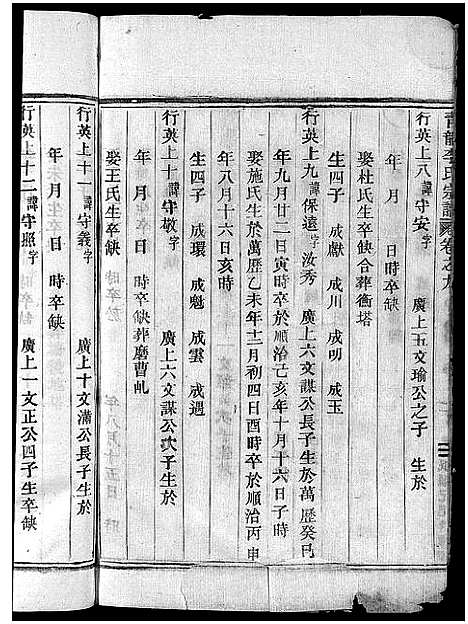 李氏宗譜 卷之九
行英上八 諱 守安 字 廣上五文瑜公之子 生於
年 月 日時卒缺
娶杜氏生卒缺合葬衡塔
生四子 成獻 成川 成明 成玉
行英上九 諱 保遠 字 汝秀 廣上六文謀公長子生於萬歷癸巳
年九月廿二日寅時卒於順治己亥年十月十六日子時
娶施氏生於萬歷乙未年十二月初四日酉時卒於順治丙申
年八月十六日亥時
生四子 成環 成魁 成雲 成遇
行英上十 諱 守敬 字 廣上六文謀公次子生於
年 月 日 時卒缺葬磨曹乢
娶王氏生卒缺
行英上十一 諱 守義 字 廣上十文滿公長子生於
年 月 日 時卒缺
行英上十二 諱 守照 字 廣上一文正公四子生卒缺